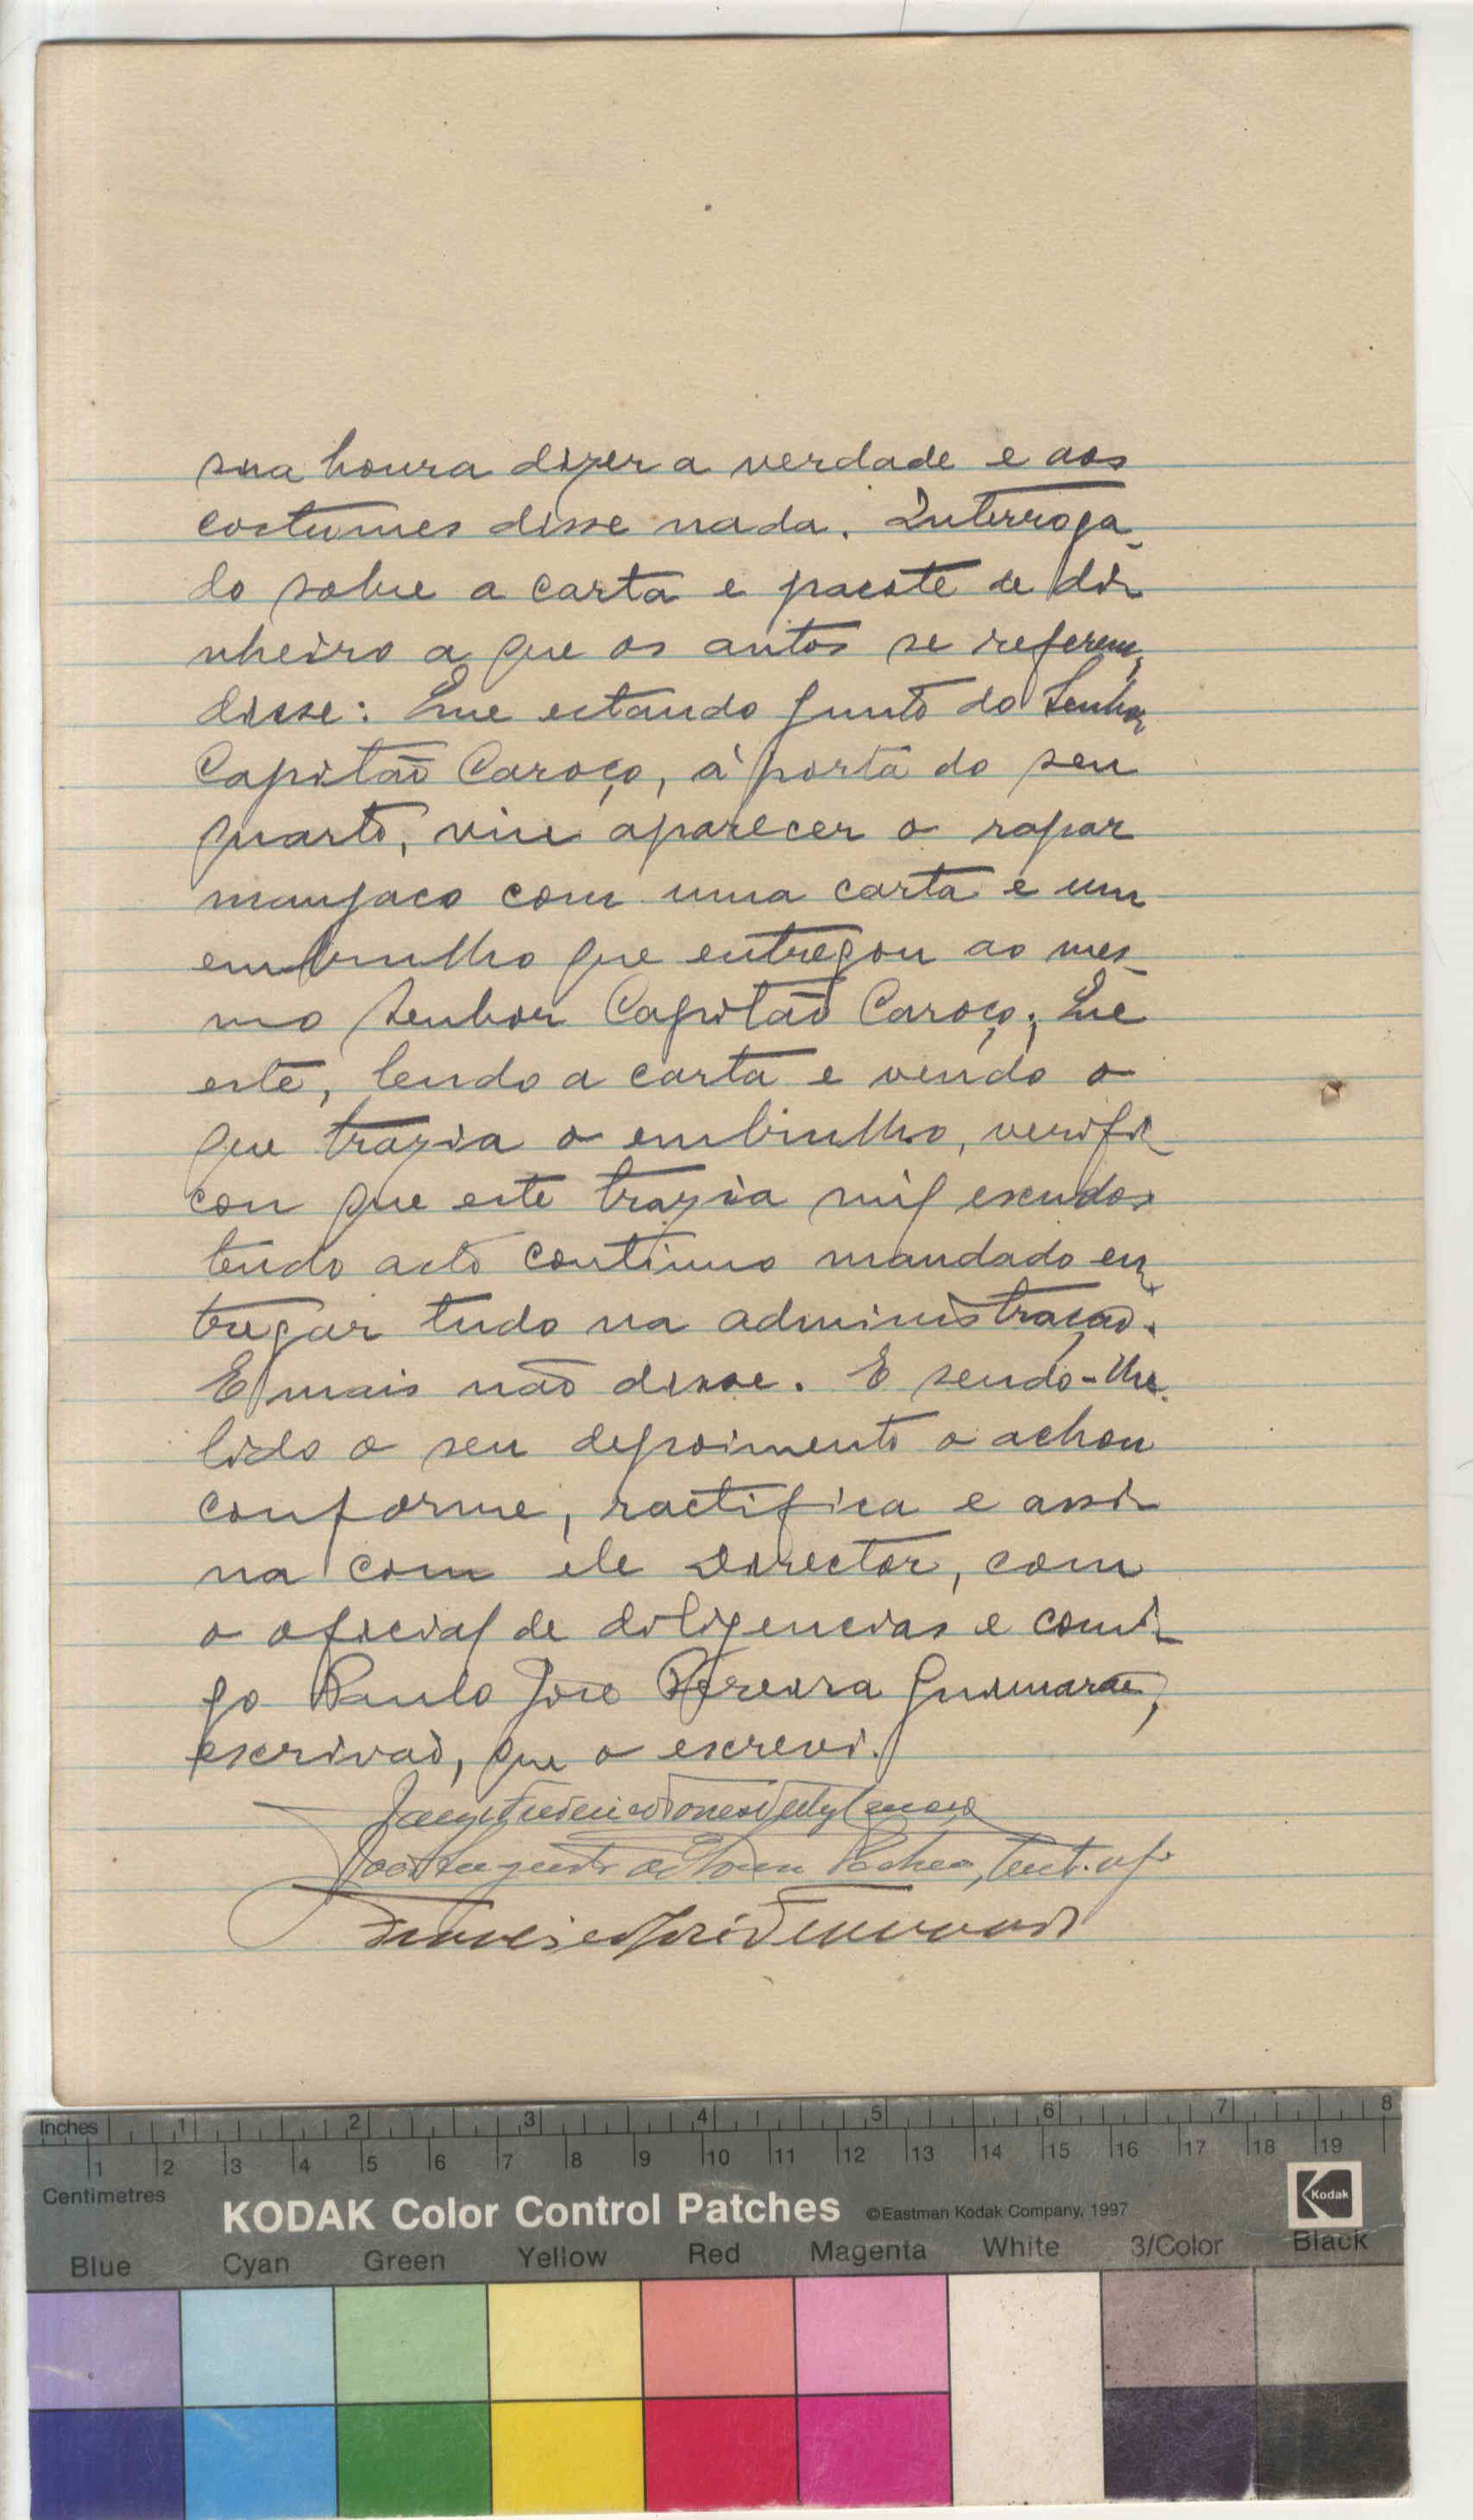 sua honra dizer a verdade e aos
costumes disse nada. Interroga-
do sobre a carta e pacote de di-
nheiro a que os autos se referem,
disse: Que estando junto do Senhor
Capitão Caroço, à porta do seu
quarto, viu aparecer o rapaz
manjaco com uma carta e um
embrulho que entregou ao mes-
mo Senhor Capitão Caroço; Que
este, lendo a carta e vendo o
que trazia o embrulho, verifi-
cou que este trazia mil escudos
tendo acto continuo mandado en-
tregar tudo na administração.
E mais não disse. E sendo-lhe
lido o seu depoimento o achou
conforme, ractifica e assi-
na com ele Director, com
o oficial de diligencias e comi-
go Paulo José Pereira Guimarães,
escrivão, que o escrevi.
Francisco José
Inches 1 2 3 4 5 6 7 8
1 2 3 4 5 6 7 8 9 10 11 12 13 14 15 16 17 18 19
Centimetres
KODAK Color Control Patches ©Eastman Kodak Company, 1997 Kodak
Blue Cyan Green Yellow Red Magenta White 3/Color Black